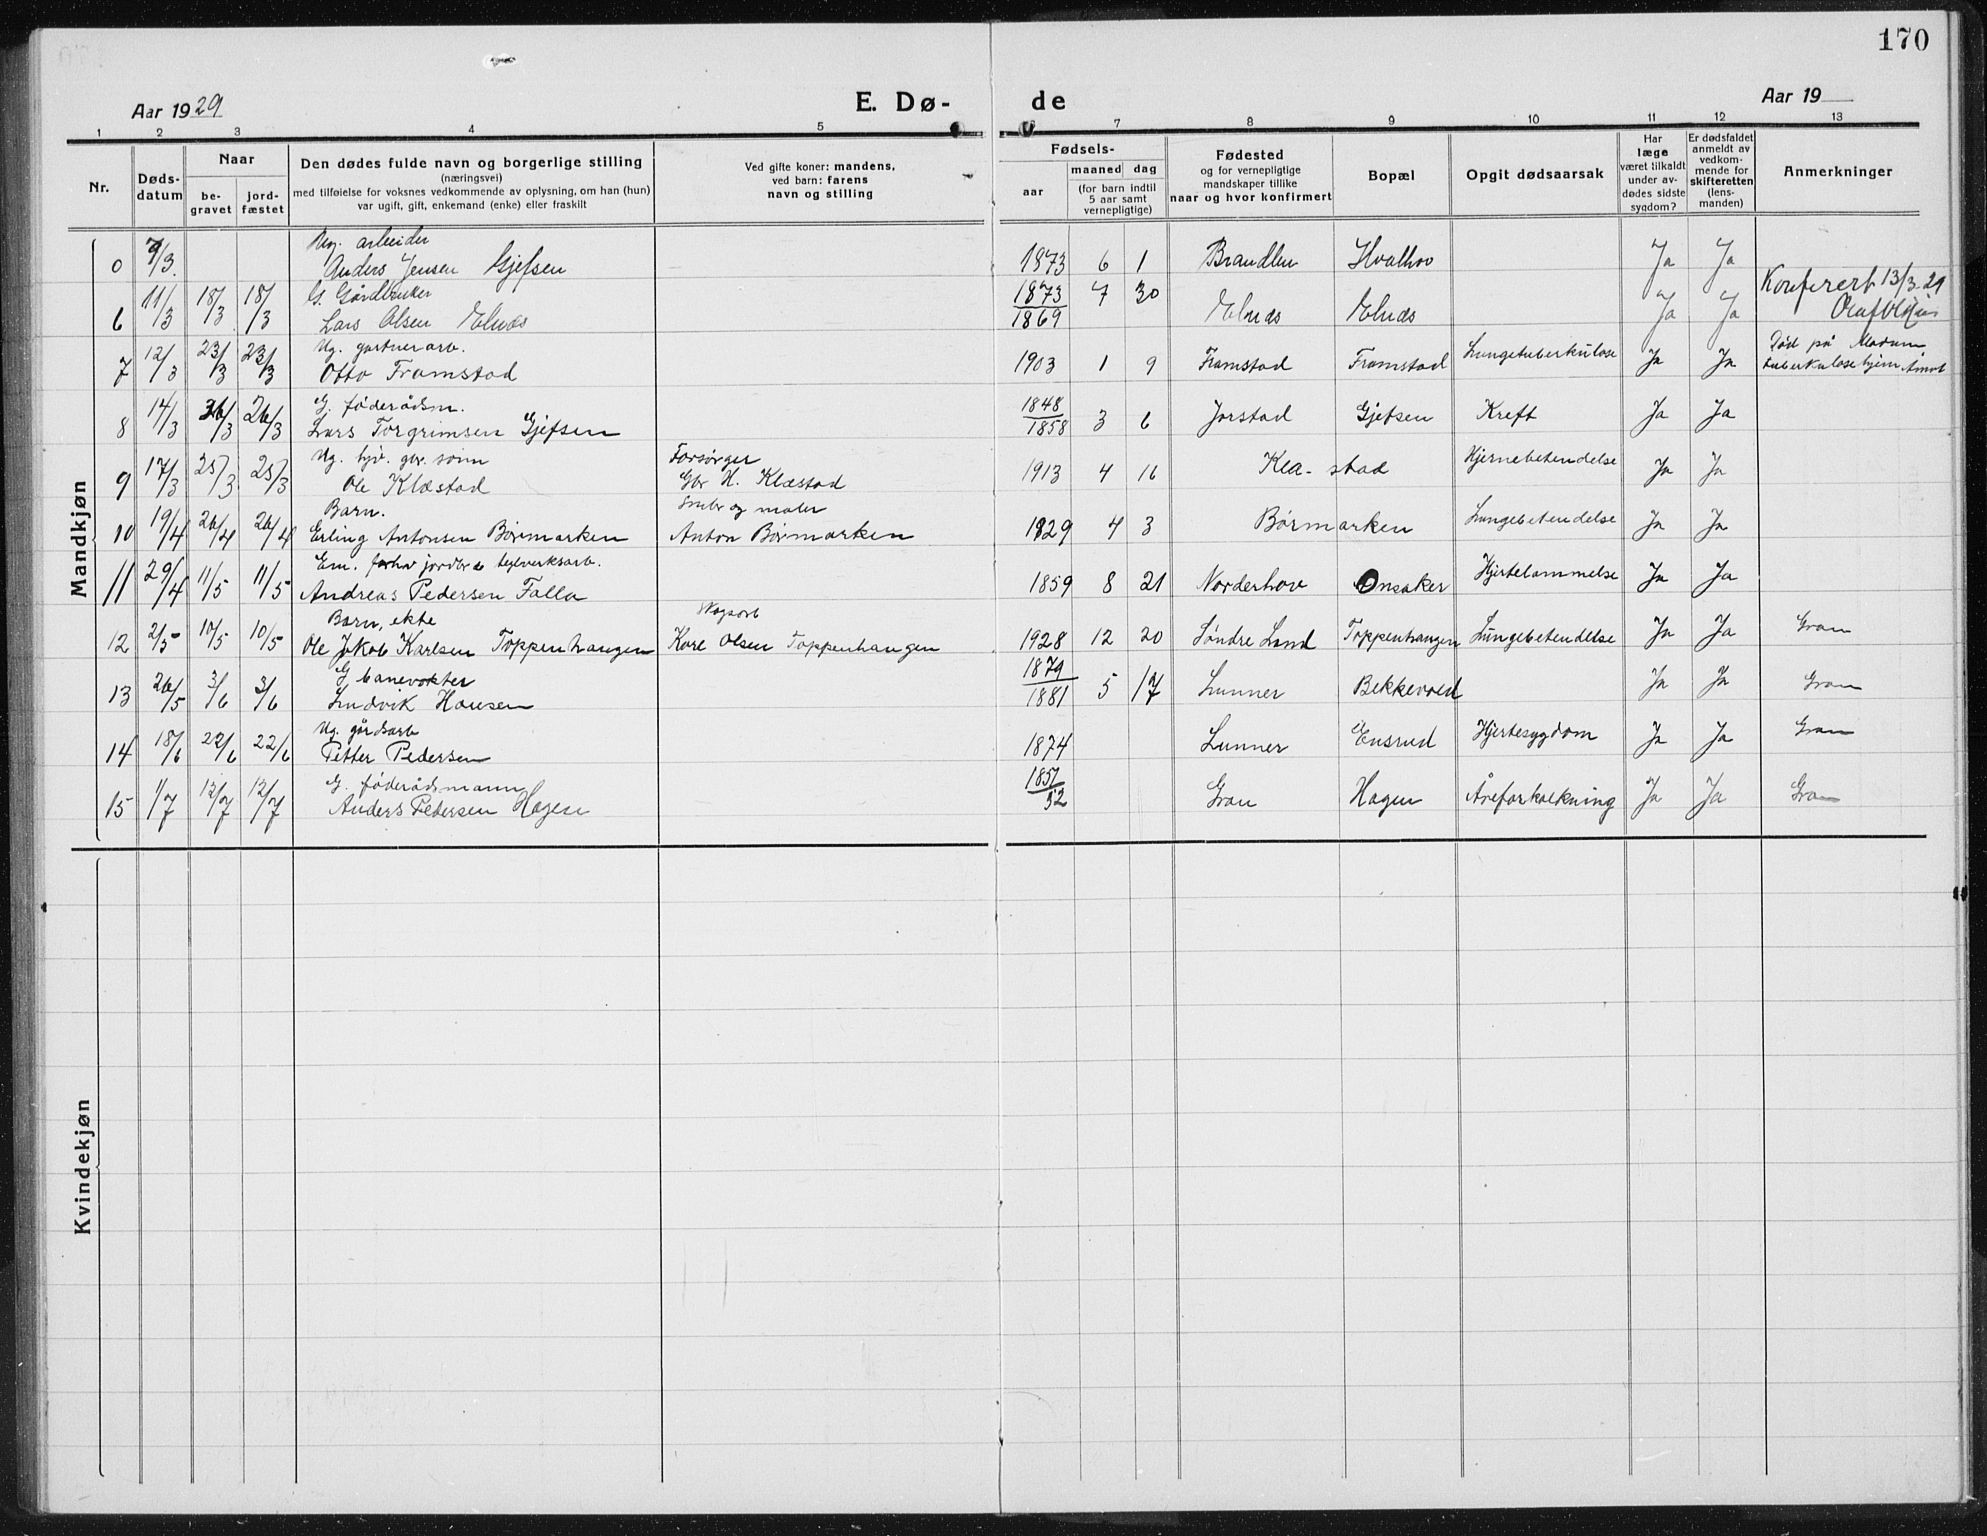 170
Aar 1929
E. Dø-
de
Aar 19
1 2 3 4 5 6 7 8 9 10 11 12 13
Nr.
Døds-
datum
Naar
be-
gravet
jord-
fæstet
Den dødes fulde navn og borgerlige stilling
(næringsvei)
med tilføielse for voksnes vedkommende av oplysning, om han (hun)
var ugift, gift, enkemand (enke) eller fraskilt
Ved gifte koner: mandens,
ved barn: farens
navn og stilling
Fødsels-
aar
maaned dag
(for barn indtil
5 aar samt
vernepligtige)
Fødested
og for vernepligtige
mandskaper tillike
naar og hvor konfirmert
Bopæl
Opgit dødsaarsak
Har
læge
været tilkaldt
under av-
dødes sidste
sygdom?
Er dødsfaldet
anmeldt av
vedkom-
mende for
skifteretten
(lens-
manden)
Anmerkninger
Mandkjøn
Ug. arbeider
0 9/3. Anders Jensen Gjefsen 1873 6 1 Brandbu Hvalhov Ja Ja
G. Gårdbruker
6 11/3 18/3 18/3 Lars Olsen Elnæs 1873/1869 7 30 Elnæs Elnæs Ja Ja Konferert 13/3 29
Ug. gartnerarb.
7 12/3 23/3 23/3 Otto Framstad 1903 1 9 Framstad Framstad Lungetuberkulose Ja Ja Død på Modum
tuberkulosehjem Åmot
G. føderådsm.
8 14/3 26/3 26/3 Lars Torgrimsen Gjefsen 1848/1858 3 6 Jorstad Gjefsen Kreft Ja Ja
Ug. hjv. gbr. sønn Forsørger
9 17/3 25/3 25/3 Ole Klæstad Gbr H. Klæstad 1913 4 16 Klæ-stad Hjernebetendelse Ja Ja
Barn. Småbr og maler
10 19/4 26/4 26/4 Erling Antonsen Børmarken Anton Børmarken 1929 4 3 Børmarken Lungebetendelse Ja Ja
Em. forhv jordbr & teglverksarb.
11 29/4 11/5 11/5 Andreas Pedersen Falla 1859 8 21 Norderhov Onsaker Hjertelammelse Ja Ja
Barn, ekte Skogsarb
12 2/5 10/5 10/5 Ole Jakob Karlsen Toppenhaugen Kare Olsen Toppenhaugen 1928 12 20 Søndre Land Toppenhaugen Lungebetendelse Ja Ja Gran
G banevokter
13 26/5 3/6 3/6 Ludvik Hansen 1879/1881 5 17 Lunner Bekkevold Ja Ja Gran
Ug. gårdsarb
14 18/6 22/6 22/6 Petter Pedersen 1874 Lunner Ensrud Hjertesygdom Ja Ja Gran
G. føderådsmann
15 1/7 12/7 12/7 Anders Pedersen Hagen 1851/52 Gran Hagen Åreforkalkning Ja Ja Gran
Kvindekjøn